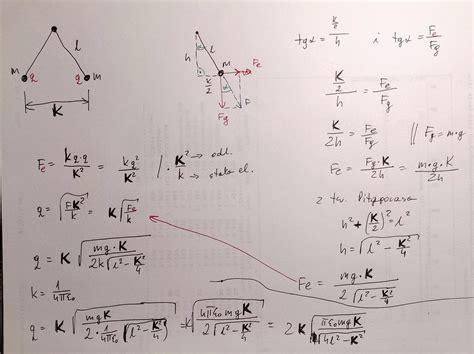 l
m q q m
K
α
h
l
m
K/2
Fe
α
Fg
F
tgα = (K/2)/h i tgα = Fe/Fg
(K/2)/h = Fe/Fg
K/2h = Fe/Fg // Fg = m·g
Fe = Fg·K/2h = m·g·K/2h
z tw. Pitagorasa
h² + (K/2)² = l²
h = √(l² - K²/4)
Fe = mg·K / 2√(l² - K²/4)
Fe = kq·q/K² = kq²/K² /· K² → odl.
k → stała el.
q = √(FK²/k) = K√(Fe/k)
q = K√(mg·K / 2k√(l² - K²/4))
k = 1/4πε₀
q = K√(mg·K / 2·1/4πε₀√(l² - K²/4)) = K√(4πε₀mgK / 2√(l² - K²/4)) = 2K√(πε₀mgK / √(4l² - K²))